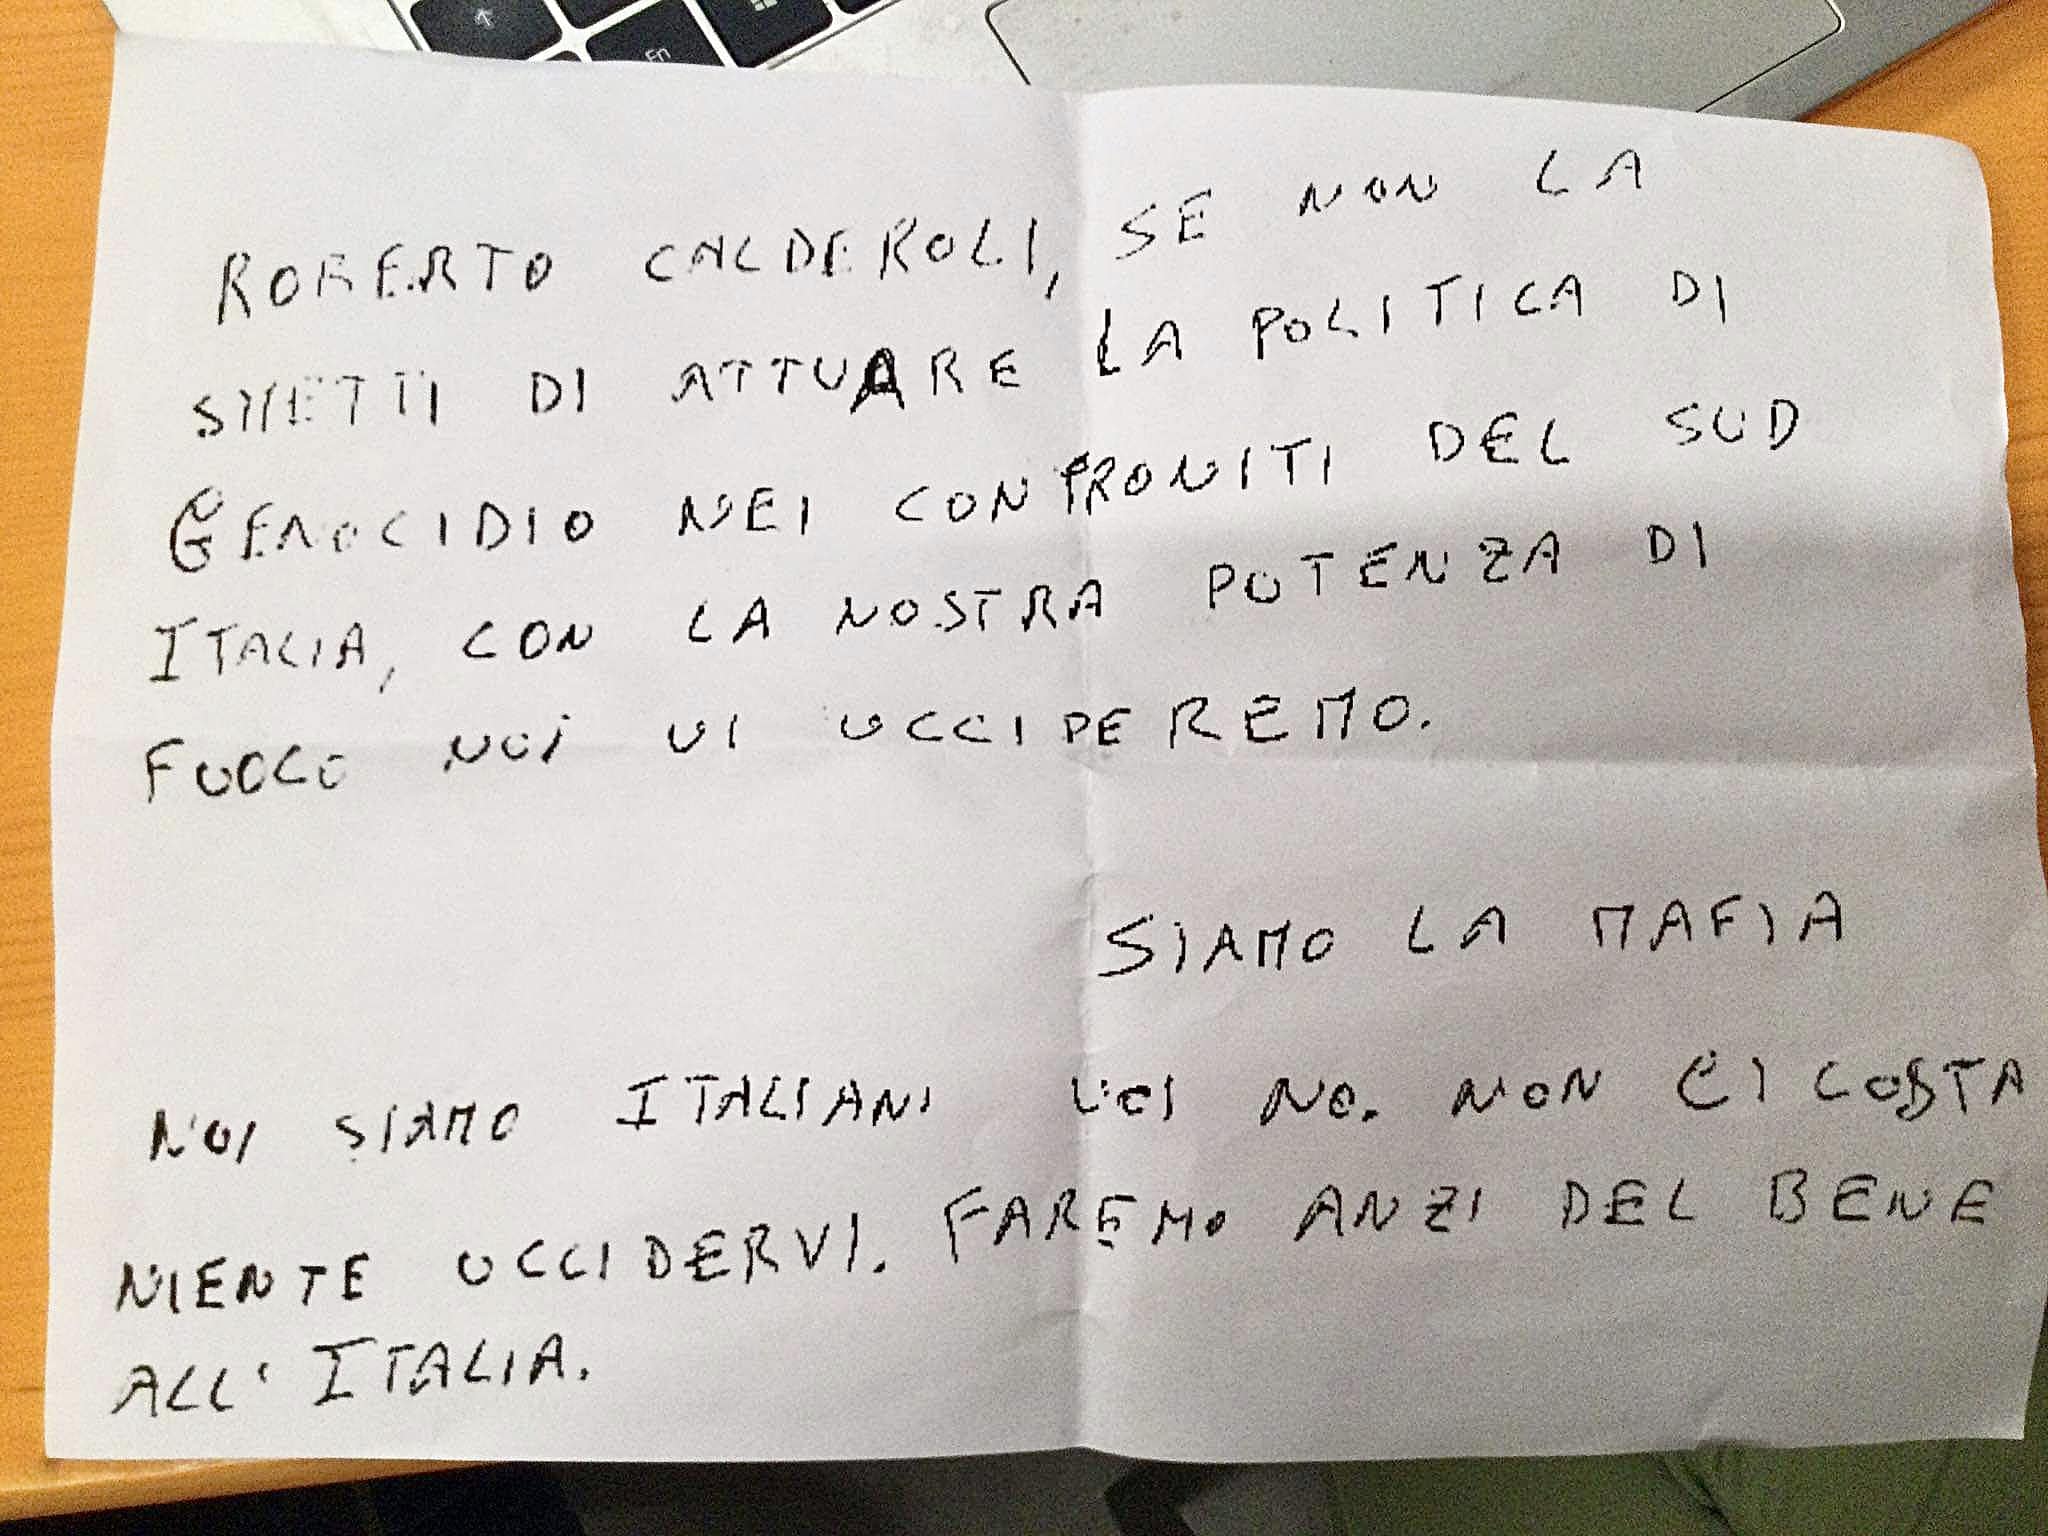 ROBERTO CALDEROLI, SE NON LA
SMETTI DI ATTUARE LA POLITICA DI
GENOCIDIO NEI CONFRONITI DEL SUD
ITALIA, CON LA NOSTRA POTENZA DI
FUOCO NOI VI UCCIDEREMO.
SIAMO LA MAFIA
NOI SIAMO ITALIANI VOI NO. NON CI COSTA
NIENTE UCCIDERVI. FAREMO ANZI DEL BENE
ALL' ITALIA.